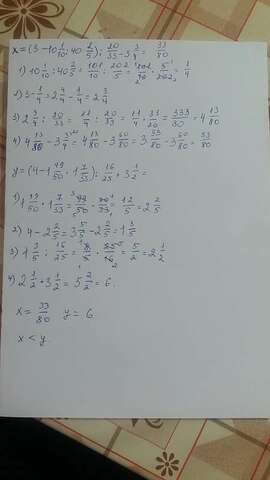 x=(3-10 1/10 : 40 2/5) : 20/33 - 3 3/4 = 33/80
1) 10 1/10 : 40 2/5 = 101/10 : 202/5 = 101/10 · 5/202 = 1/4
2) 3 - 1/4 = 2 4/4 - 1/4 = 2 3/4
3) 2 3/4 : 20/33 = 11/4 : 20/33 = 11/4 · 33/20 = 333/80 = 4 13/80
4) 4 13/80 - 3 3/4 = 4 13/80 - 3 60/80 = 3 93/80 - 3 60/80 = 33/80
y=(4-1 49/50 · 1 7/33) : 16/25 + 3 1/2 =
1) 1 49/50 · 1 7/33 = 99/50 · 40/33 = 12/5 = 2 2/5
2) 4 - 2 2/5 = 3 5/5 - 2 2/5 = 1 3/5
3) 1 3/5 : 16/25 = 8/5 · 25/16 = 5/2 = 2 1/2
4) 2 1/2 + 3 1/2 = 5 2/2 = 6.
x = 33/80 y = 6
x < y